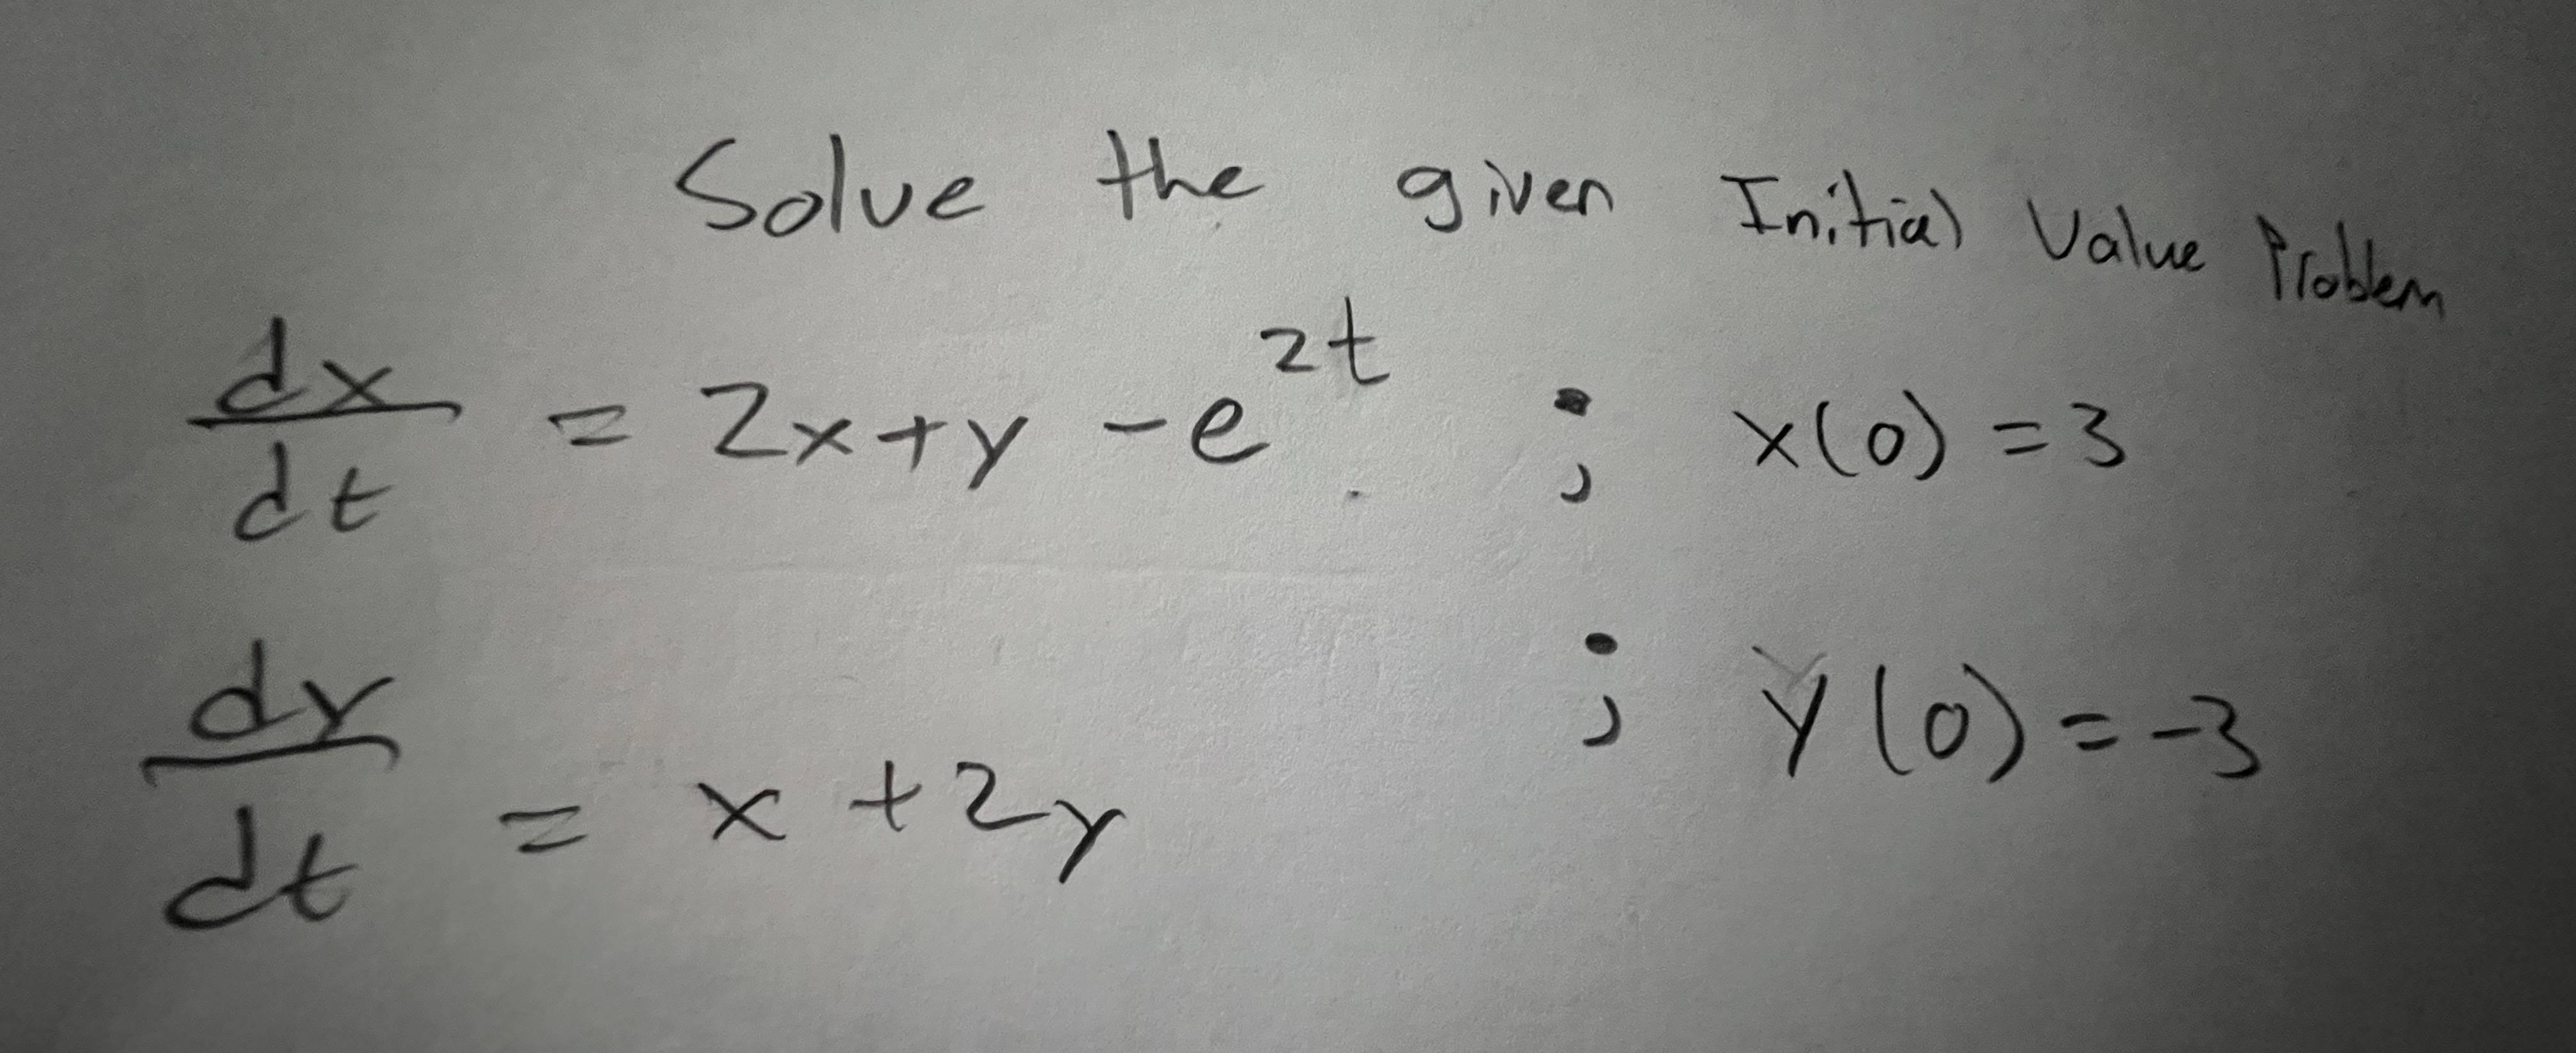 Solve the given Initial Value Problem
dx/dt = 2x+y -e^2t ; x(0) =3
dy/dt = x +2y ; y(0)=-3